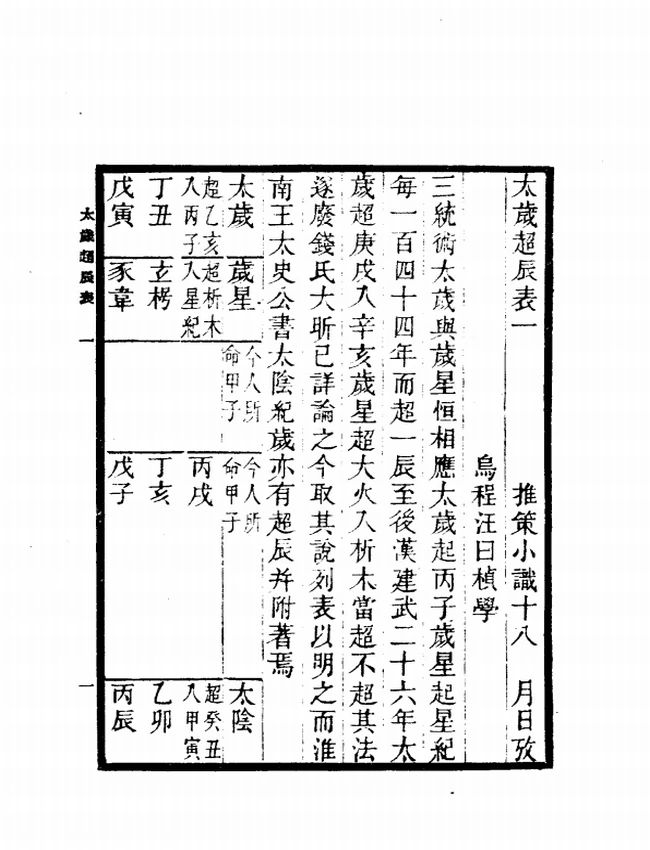 太歲超辰表一　推策小識十八　月日攷
烏程汪曰楨學
三統術太歲與歲星恒相應太歲起丙子歲星起星紀
每一百四十四年而超一辰至後漢建武二十六年太
歲超庚戌入辛亥歲星超大火入析木當超不超其法
遂廢錢氏大昕已詳論之今取其說列表以明之而淮
南王太史公書太陰紀歲亦有超辰幷附著焉
太歲　歲星　今人所命甲子　今人所命甲子　太陰
超乙亥入丙子　超析木入星紀　丙戌　超癸丑入甲寅
丁丑　玄枵　丁亥　乙卯
戊寅　豕韋　戊子　丙辰
太歲超辰表　一　一